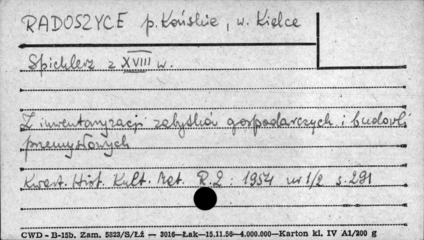 RADOSZYCE p. Końskie, w. Kielce
Spichlerz z XVIII w.
Z inwentaryzacji zabytków gospodarczych i budowli
przemysłowych
Kwart. Hist. Kult. Mat. R.2: 1954 nr 1/2 s. 291
CWD - B-15b. Zam. 5323/S/Łż — 3016—Łak—15.11.56—4.000.000—Karton kl. IV A1/200 g